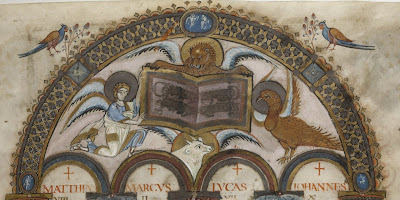 MATTHE MARCVS LVCAS IOHANNES